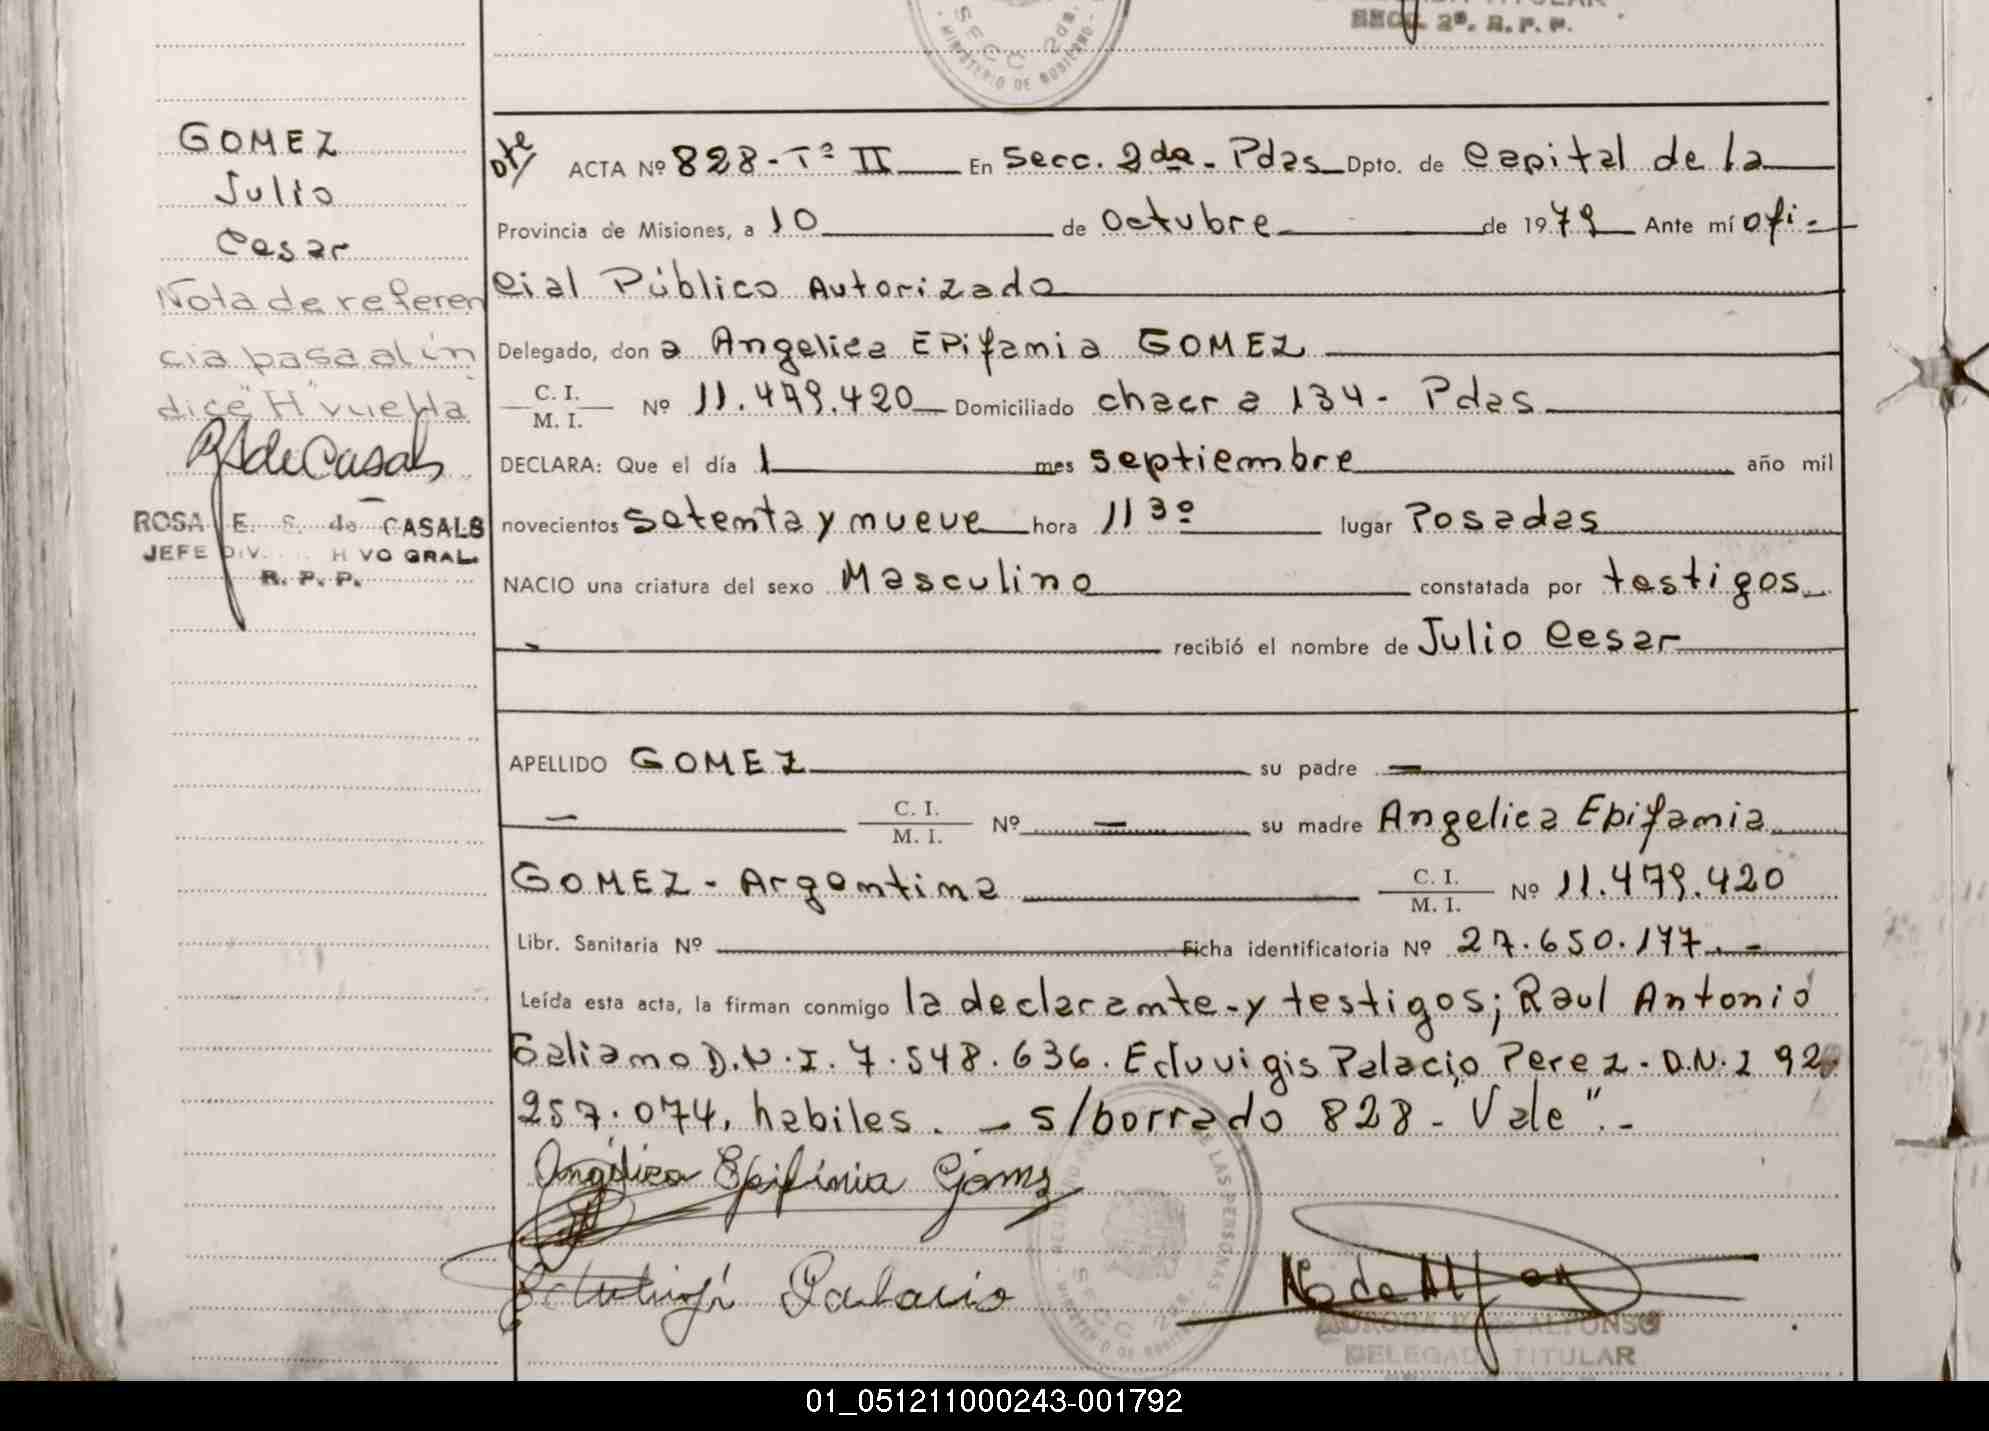 SECC. 2ª. R. P. P.
SECC 2da.
MINISTERIO DE GOBIERNO
GOMEZ
Julio
Cesar
Nota de referen
cia pasa al ín
dice "H" vuelta
RSdeCasals
ROSA E. S. de CASALS
JEFE DIV. H VO GRAL.
R. P. P.
Dte/ ACTA Nº 828 - Tº II En Secc. 2da - Pdas Dpto. de Capital de la
Provincia de Misiones, a 10 de Octubre de 1979 Ante mí ofi-
cial Público Autorizado
Delegado, don a Angelica Epifania GOMEZ
C. I.
M. I. Nº 11.479.420 Domiciliado chacra 134 - Pdas
DECLARA: Que el día 1 mes septiembre año mil
novecientos setenta y nueve hora 11 30 lugar Posadas
NACIO una criatura del sexo Masculino constatada por testigos
- recibió el nombre de Julio Cesar
APELLIDO GOMEZ su padre —
— C. I.
M. I. Nº — su madre Angelica Epifania
GOMEZ - Argentina C. I.
M. I. Nº 11.479.420
Libr. Sanitaria Nº Ficha identificatoria Nº 27.650.177. -
Leída esta acta, la firman conmigo la declarante - y testigos; Raul Antonio
Galiano D.N.I. 7.548.636. Eduvigis Palacio Perez - D.N.I 92.
257.074, habiles. - s/borrado 828 - Vale". -
Angélica Epifinia Gómz
Palacio
LAS PERSONAS
SECC 2da.
MINISTERIO DE GOBIERNO
N de Alfon
AURORA ALFONSO
DELEGADA TITULAR
01_051211000243-001792